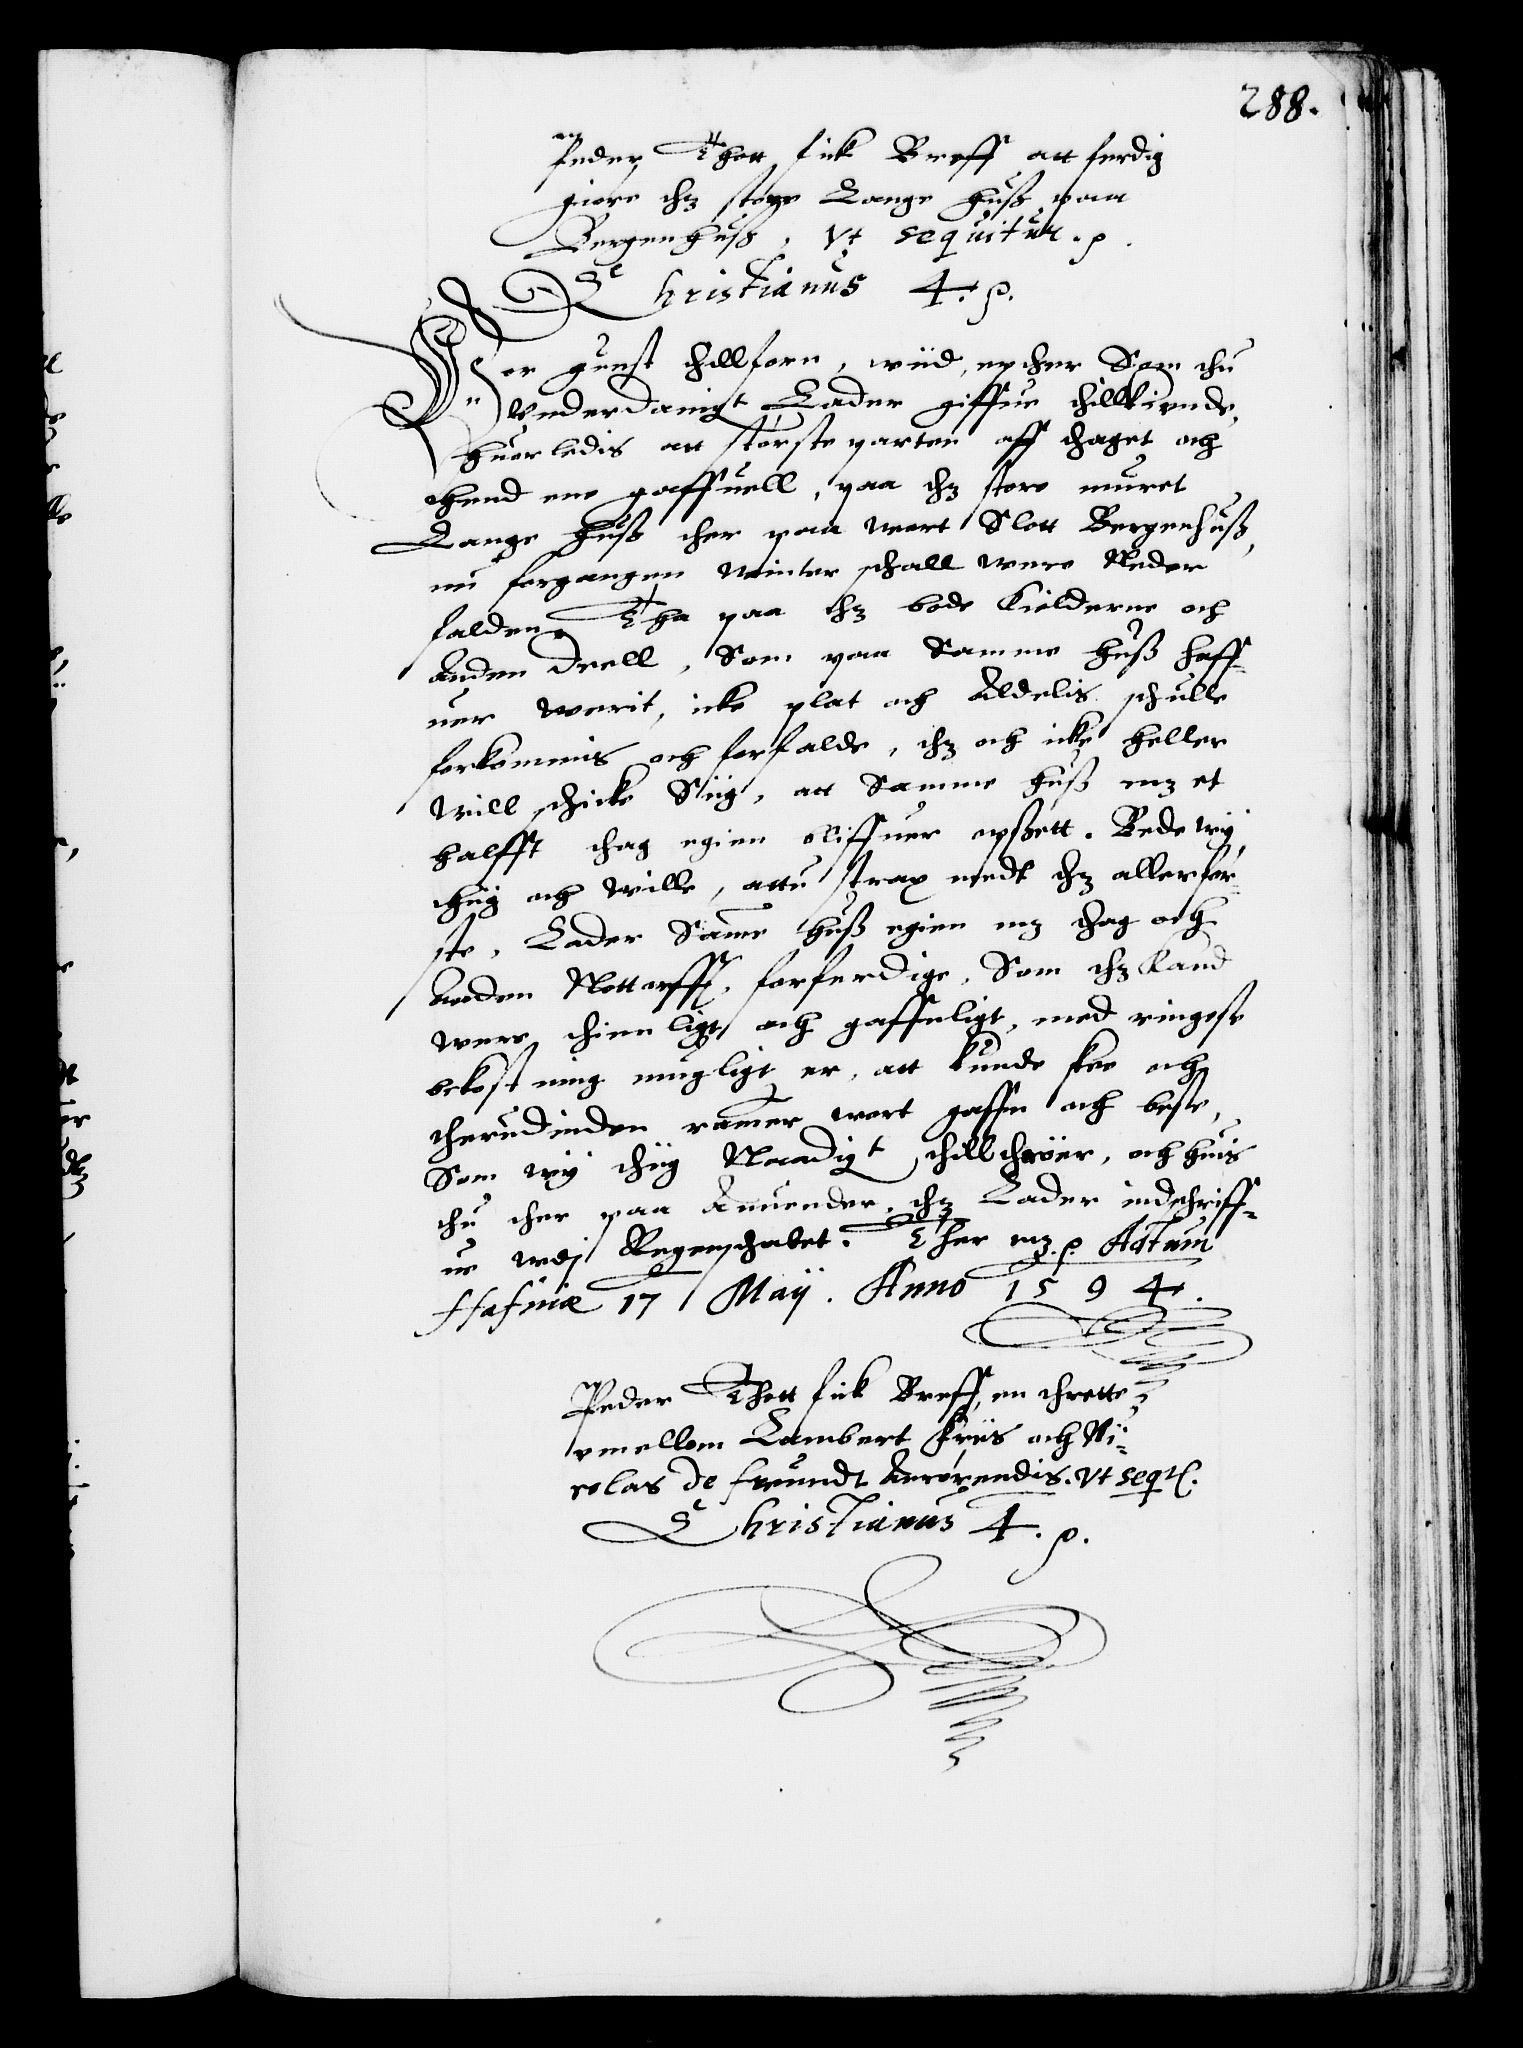 288.
Peder Thott fick Breff att ferdig
giøre thz store Lange huß paa
Bergenhuß, Vt sequitur. p.
Christianus 4. p.
Vor gunst thillforn, wiid, epther Som thu
Vnderdanigt Lader giffue thillkiende,
huorledis att største parten aff thaget och
thend ene gaffuell, paa thz store muret
Lange huß ther paa wort Slott Bergenhuß,
nu forgangen winter schall were Neder
falden, Tha paa thz bode Kielderne och
anden Deell, Som paa Samme huß haff-
uer werit, icke plat och Aldelis schulle
forkommis och forfalde, thz och icke heller
will schicke Siig, att Samme huß mz et
halfft thag egien bliffuer opßett. Bede wij
thiig och wille, attu strax medt thz allerfør-
ste, Lader Same huß egien mz thag och
anden Nottorfft, forferdige, Som thz kand
were thienligt och gaffnligt, med ringeste
bekostning mugligt er, att kunde skee och
therudinden ramer wort gaffn och beste,
Som wij thiig Naadigt thillthroer, och huis
thu ther paa Anuender, thz Lader indschriff-
ue wdj Regenschabet. Ther mz. p. Actum
Haffniæ 17 Maij. Anno 1594.
Peder Thott fick Breff, en thrette
emellom Lambert Friis och Ni-
colas de Freundt Anrørendis. Vt seqt.
Christianus 4. p.